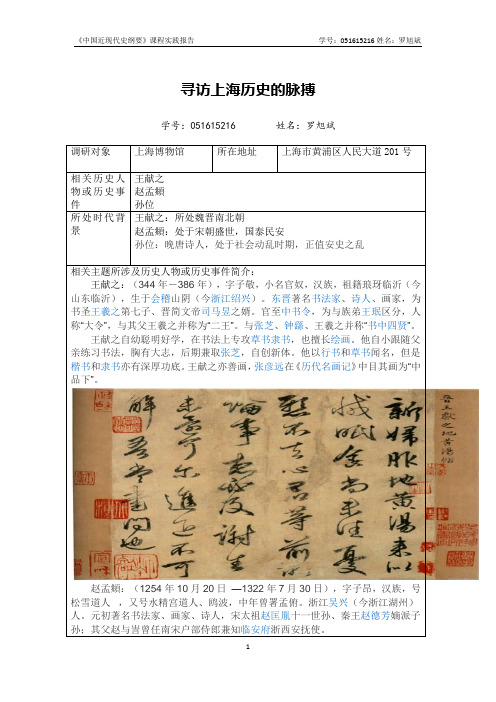 《中国近现代史纲要》课程实践报告 学号：051615216 姓名：罗旭斌
寻访上海历史的脉搏
学号：051615216 姓名：罗旭斌
调研对象 上海博物馆 所在地址 上海市黄浦区人民大道 201 号
相关历史人物或历史事件
王献之
赵孟頫
孙位
所处时代背景
王献之：所处魏晋南北朝
赵孟頫：处于宋朝盛世，国泰民安
孙位：晚唐诗人，处于社会动乱时期，正值安史之乱
相关主题所涉及历史人物或历史事件简介：
王献之：（344 年－386 年），字子敬，小名官奴，汉族，祖籍琅玡临沂（今
山东临沂），生于会稽山阴（今浙江绍兴）。东晋著名书法家、诗人、画家，为
书圣王羲之第七子、晋简文帝司马昱之婿。官至中书令，为与族弟王珉区分，人
称“大令”。与其父王羲之并称为“二王”。与张芝、钟繇、王羲之并称“书中四贤”。
王献之自幼聪明好学，在书法上专攻草书隶书，也擅长绘画。他自小跟随父
亲练习书法，胸有大志，后期兼取张芝，自创新体。他以行书和草书闻名，但是
楷书和隶书亦有深厚功底。王献之亦善画，张彦远在《历代名画记》中目其画为“中
品下”。
晉王獻之地黄湯帖
新婦服地黄湯来似
減眠食尚未佳憂
懸不去心君等前所
論事想必及謝生
未還可尔進退不可
解吾當書問也
赵孟頫：（1254 年 10 月 20 日 —1322 年 7 月 30 日），字子昂，汉族，号
松雪道人 ，又号水精宫道人、鸥波，中年曾署孟俯。浙江吴兴（今浙江湖州）
人。元初著名书法家、画家、诗人，宋太祖赵匡胤十一世孙、秦王赵德芳嫡派子
孙；其父赵与訔曾任南宋户部侍郎兼知临安府浙西安抚使。
1